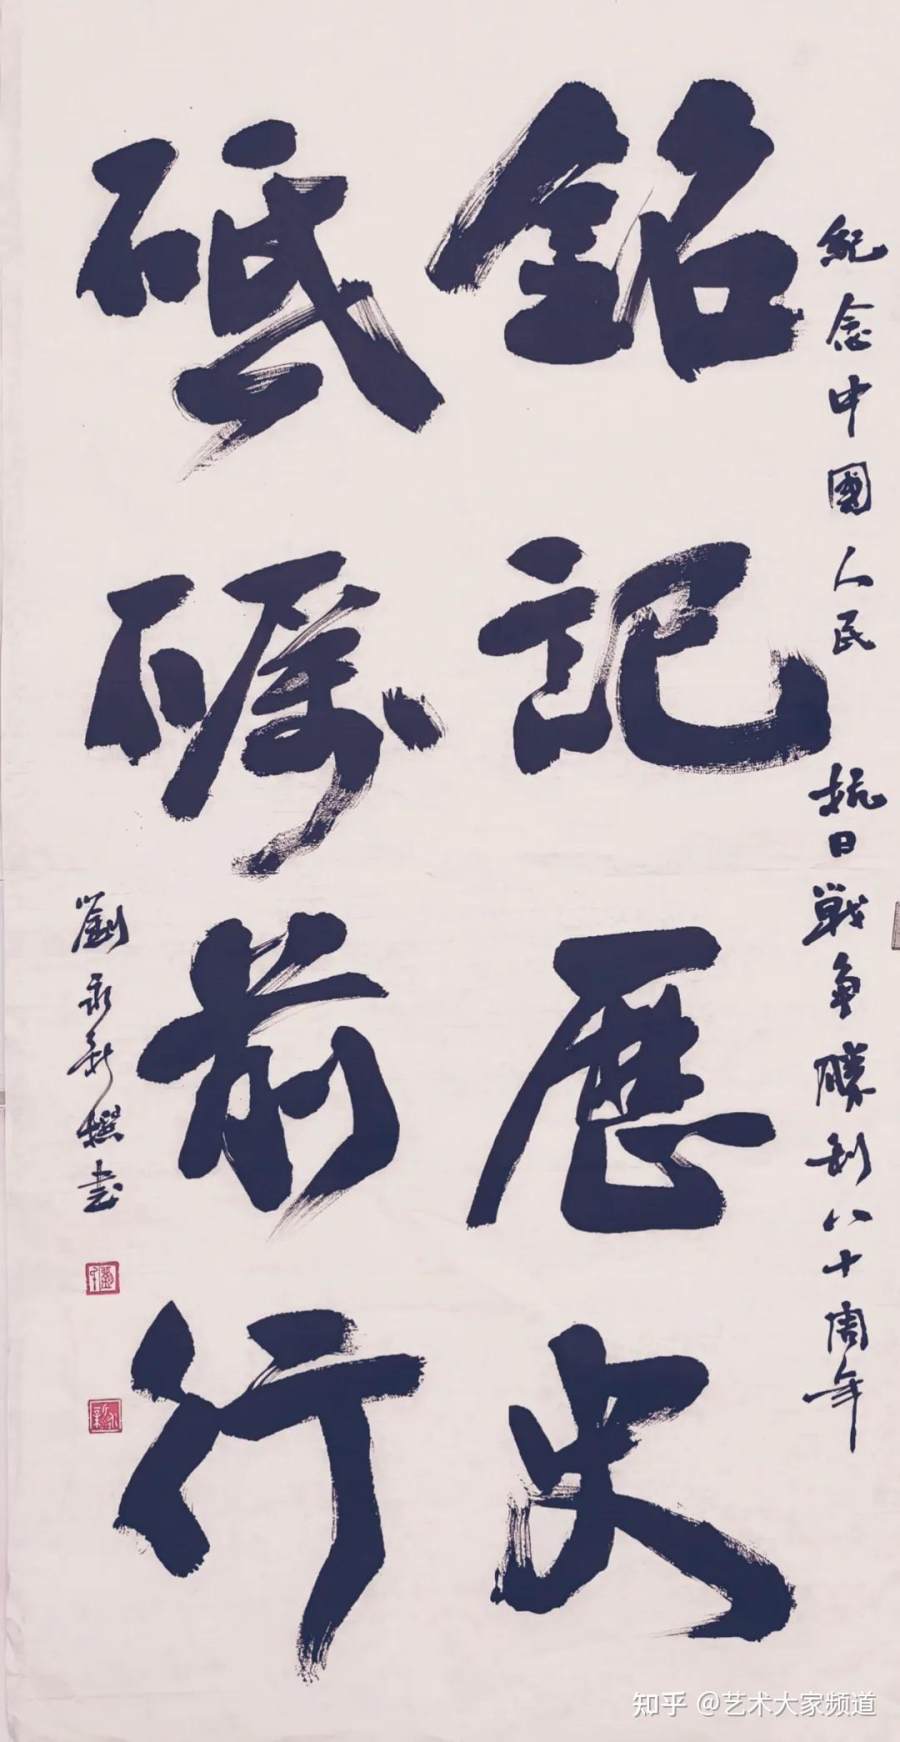 紀念中國人民抗日戰爭勝利八十周年
銘記歷史
砥礪前行
劉永新撰書
知乎 @艺术大家频道